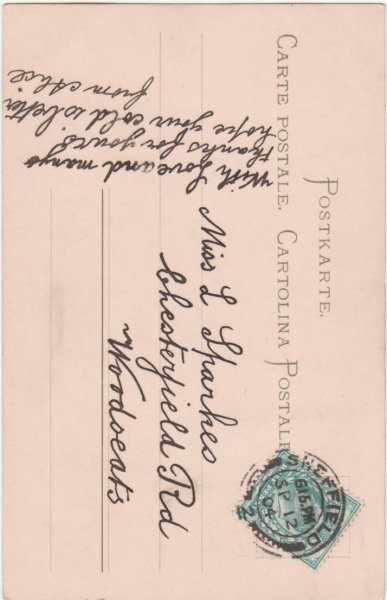 POSTKARTE.
CARTE POSTALE. CARTOLINA POSTALE
With Love and many
thanks for yours
hope your cold is better
from Alice
Miss L Sparkes
Chesterfield Rd
Woodseats
SHEFFIELD
6 15 PM
SP 12
04